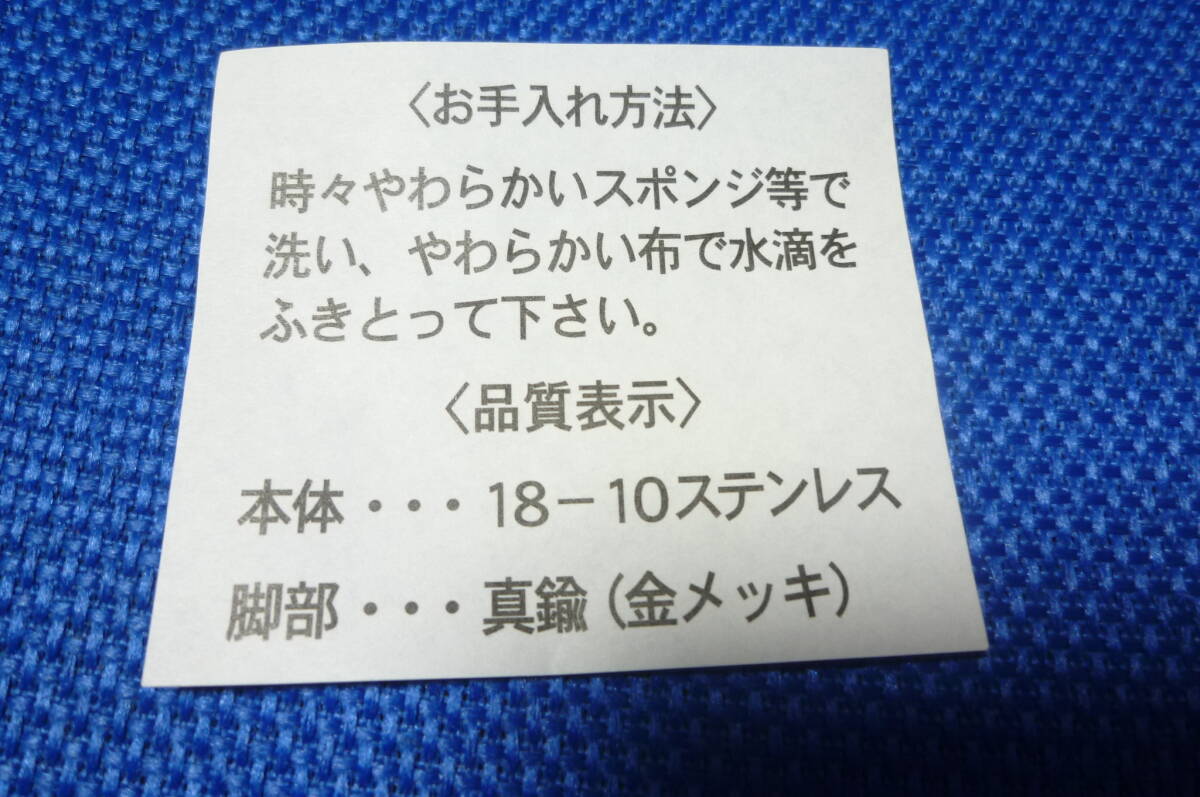 〈お手入れ方法〉
時々やわらかいスポンジ等で
洗い、やわらかい布で水滴を
ふきとって下さい。
〈品質表示〉
本体・・・18－10ステンレス
脚部・・・真鍮（金メッキ）